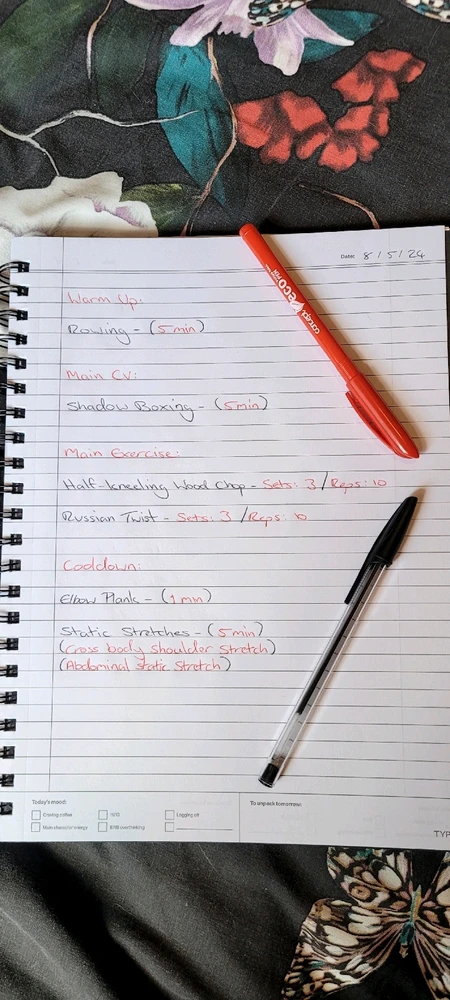 Date: 8/5/24
Warm Up:
Rowing - (5 min)
Main CV:
Shadow Boxing - (5min)
Main Exercise:
Half-kneeling Wood Chop - Sets: 3 / Reps: 10
Russian Twist - Sets: 3 / Reps: 10
Cooldown:
Elbow Plank - (1 min)
Static Stretches - (5 min)
(Cross body shoulder Stretch)
(Abdominal static Stretch)
eco
Today's mood:
To unpack tomorrow:
Craving coffee
Logging off
Main character energy
BRB overthinking
TYP